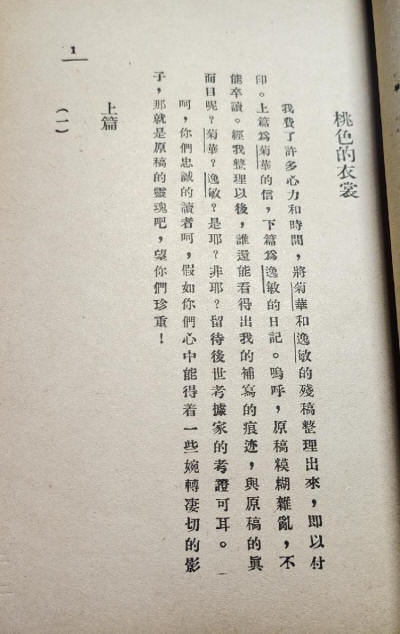 桃色的衣裳
我費了許多心力和時間，將菊華和逸敏的殘稿整理出來，卽以付
印。上篇爲菊華的信，下篇爲逸敏的日記。嗚呼，原稿糢糊雜亂，不
能卒讀。經我整理以後，誰還能看得出我的補寫的痕迹，與原稿的眞
面目呢？菊華？逸敏？是耶？非耶？留待後世考據家的考證可耳。
呵，你們忠誠的讀者呵，假如你們心中能得着一些婉轉凄切的影
子，那就是原稿的靈魂吧，望你們珍重！
上篇
（一）
1